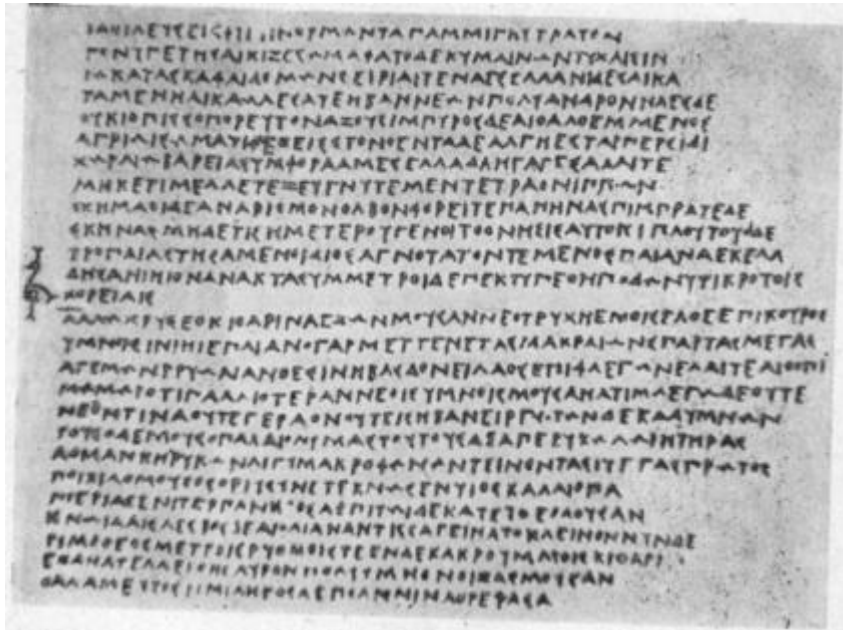 ΒΑΣΙΛΕΥΣΕΙΣΦΥΓΗΝΟΡΜΩΝΤΑΠΑΜΜΙΓΗΣΤΡΑΤΟΝ
ΓΟΝΥΠΕΤΗΣΑΙΚΙΖΕΣΩΜΑΦΑΤΟΔΕΚΥΜΑΙΝΩΝΤΥΧΑΙΣΙΝ
ΙΩΚΑΤΑΣΚΑΦΑΙΔΟΜΩΝΣΕΙΡΙΑΙΤΕΝΑΕΣΕΛΛΑΝΙΔΕΣΑΙΚΑ
ΤΑΜΕΝΗΛΙΚΑΩΛΕΣΑΤΕΗΒΑΝΝΕΩΝΠΟΛΥΑΝΔΡΟΝΝΑΕΣΔΕ
ΟΥΚΙΟΠΙΣΣΟΠΟΡΕΥΤΟΝΑΞΟΥΣΙΜΠΥΡΟΣΔΕΑΙΘΑΛΟΕΜΜΕΝΟΣ
ΑΓΡΙΩΙΣΩΜΑΤΙΦΛΕΞΕΙΣΤΟΝΟΕΝΤΑΔΕΑΛΓΗΕΣΤΑΙΠΕΡΣΙΔΙ
ΧΩΡΑΙΩΒΑΡΕΙΑΣΥΜΦΟΡΑΑΜΕΣΕΛΛΑΔΑΗΓΑΓΕΣΑΛΛΙΤΕ
ΜΗΚΕΤΙΜΕΛΛΕΤΕΖΕΥΓΝΥΤΕΜΕΝΤΕΤΡΑΟΝΙΠΠΩΝ
ΟΧΗΜΑΟΙΔΕΑΝΑΡΙΘΜΟΝΟΛΒΟΝΦΟΡΕΙΤΕΠΑΠΗΝΑΣΠΙΜΠΡΑΤΕΔΕ
ΣΚΗΝΑΣΜΗΔΕΤΙΣΗΜΕΤΕΡΟΥΓΕΝΟΙΤΟΟΝΗΣΙΣΑΥΤΟΙΣΙΠΛΟΥΤΟΥΟΙΔΕ
ΤΡΟΠΑΙΑΣΤΗΣΑΜΕΝΟΙΔΙΟΣΑΓΝΟΤΑΤΟΝΤΕΜΕΝΟΣΠΑΙΑΝΑΕΚΕΛΑ
ΔΗΣΑΝΙΗΙΟΝΑΝΑΚΤΑΣΥΜΜΕΤΡΟΙΔΕΠΕΚΤΥΠΕΟΝΠΟΔΩΝΥΨΙΚΡΟΤΟΙΣ
ΧΟΡΕΙΑΙΣ
ΑΛΛΩΧΡΥΣΕΟΚΙΘΑΡΙΝΑΕΞΩΝΜΟΥΣΑΝΝΕΟΤΕΥΧΗΕΜΟΙΣΕΛΘΕΕΠΙΚΟΥΡΟΣ
ΥΜΝΟΙΣΙΝΙΗΙΕΠΑΙΑΝΟΓΑΡΜΕΥΓΕΝΕΤΑΣΜΑΚΡΑΙΩΝΣΠΑΡΤΑΣΜΕΓΑΣ
ΑΓΕΜΩΝΒΡΥΩΝΑΝΘΕΣΙΝΗΒΑΣΔΟΝΕΙΛΑΟΣΕΠΙΦΛΕΓΩΝΕΛΑΙΤΕΑΙΘΟΠΙ
ΜΩΜΩΙΟΤΙΠΑΛΑΙΟΤΕΡΑΝΝΕΟΙΣΥΜΝΟΙΣΜΟΥΣΑΝΑΤΙΜΩΕΓΩΔΕΟΥΤΕ
ΝΕΟΝΤΙΝΑΟΥΤΕΓΕΡΑΟΝΟΥΤΕΙΣΗΒΑΝΕΙΡΓΩΤΩΝΔΕΚΑΣΥΜΝΩΝ
ΤΟΥΣΔΕΜΟΥΣΟΠΑΛΑΙΟΛΥΜΑΣΤΟΥΤΟΥΣΔΑΠΕΡΥΚΩΛΩΒΗΤΗΡΑΣ
ΑΟΙΔΑΝΚΗΡΥΚΩΝΛΙΓΥΜΑΚΡΟΦΩΝΩΝΤΕΙΝΟΝΤΑΣΙΥΓΓΑΣΠΡΩΤΟΣ
ΠΟΙΚΙΛΟΜΟΥΣΟΣΟΡΙΥΣΥΝΕΤΕΚΝΩΣΕΝΥΙΟΣΚΑΛΛΙΟΠΑ
ΠΙΕΡΙΑΣΕΝΙΤΕΡΠΑΝΔΡΟΣΔΕΠΙΤΩΙΔΕΚΑΤΕΥΞΕΜΟΥΣΑΝ
ΕΝΩΙΔΑΙΣΛΕΣΒΟΣΔΕΑΙΟΛΙΑΝΑΝΤΙΣΣΑΓΕΙΝΑΤΟΚΛΕΙΝΟΝΝΥΝΔΕ
ΤΙΜΟΘΕΟΣΜΕΤΡΟΙΣΡΥΘΜΟΙΣΤΕΕΝΔΕΚΑΚΡΟΥΜΑΤΟΙΣΚΙΘΑΡΙ
ΕΞΑΝΑΤΕΛΛΕΙΘΗΣΑΥΡΟΝΠΟΛΥΥΜΝΟΝΟΙΞΑΣΜΟΥΣΑΝ
ΘΑΛΑΜΕΥΤΟΣΜΙΛΗΤΟΣΔΕΠΟΛΙΣΝΙΝΑΘΡΕΨΑΣΑ